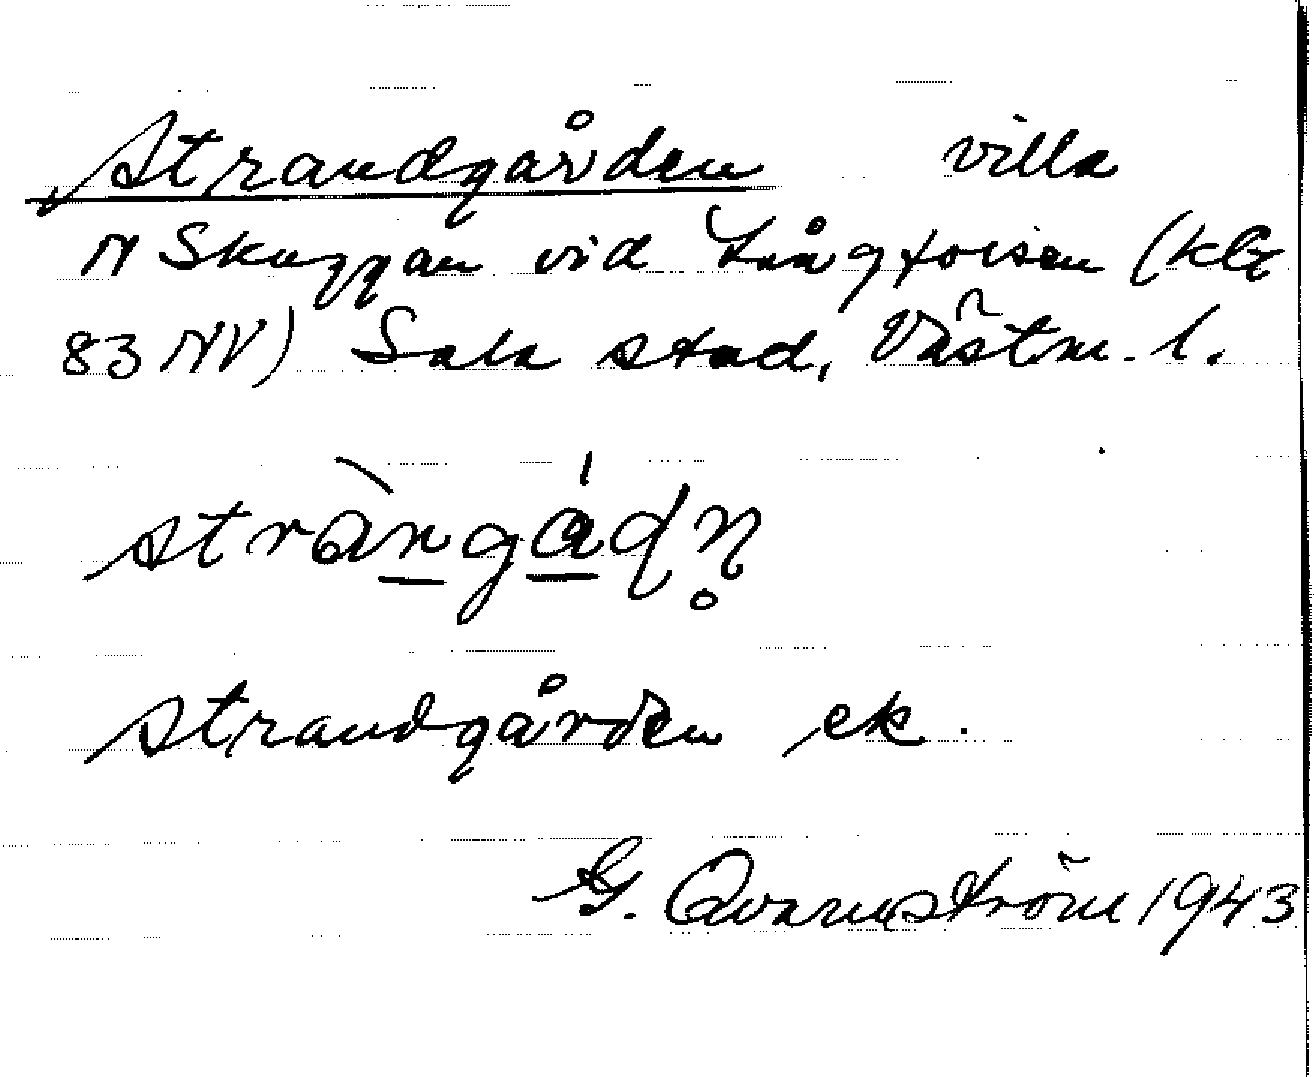 Strandgården villa
N Skuggan vid Långforsen (kbl
83 NV) Sala stad, Västm. l.
stràngádn̥
strandgården ek.
G. Qvarnström 1943